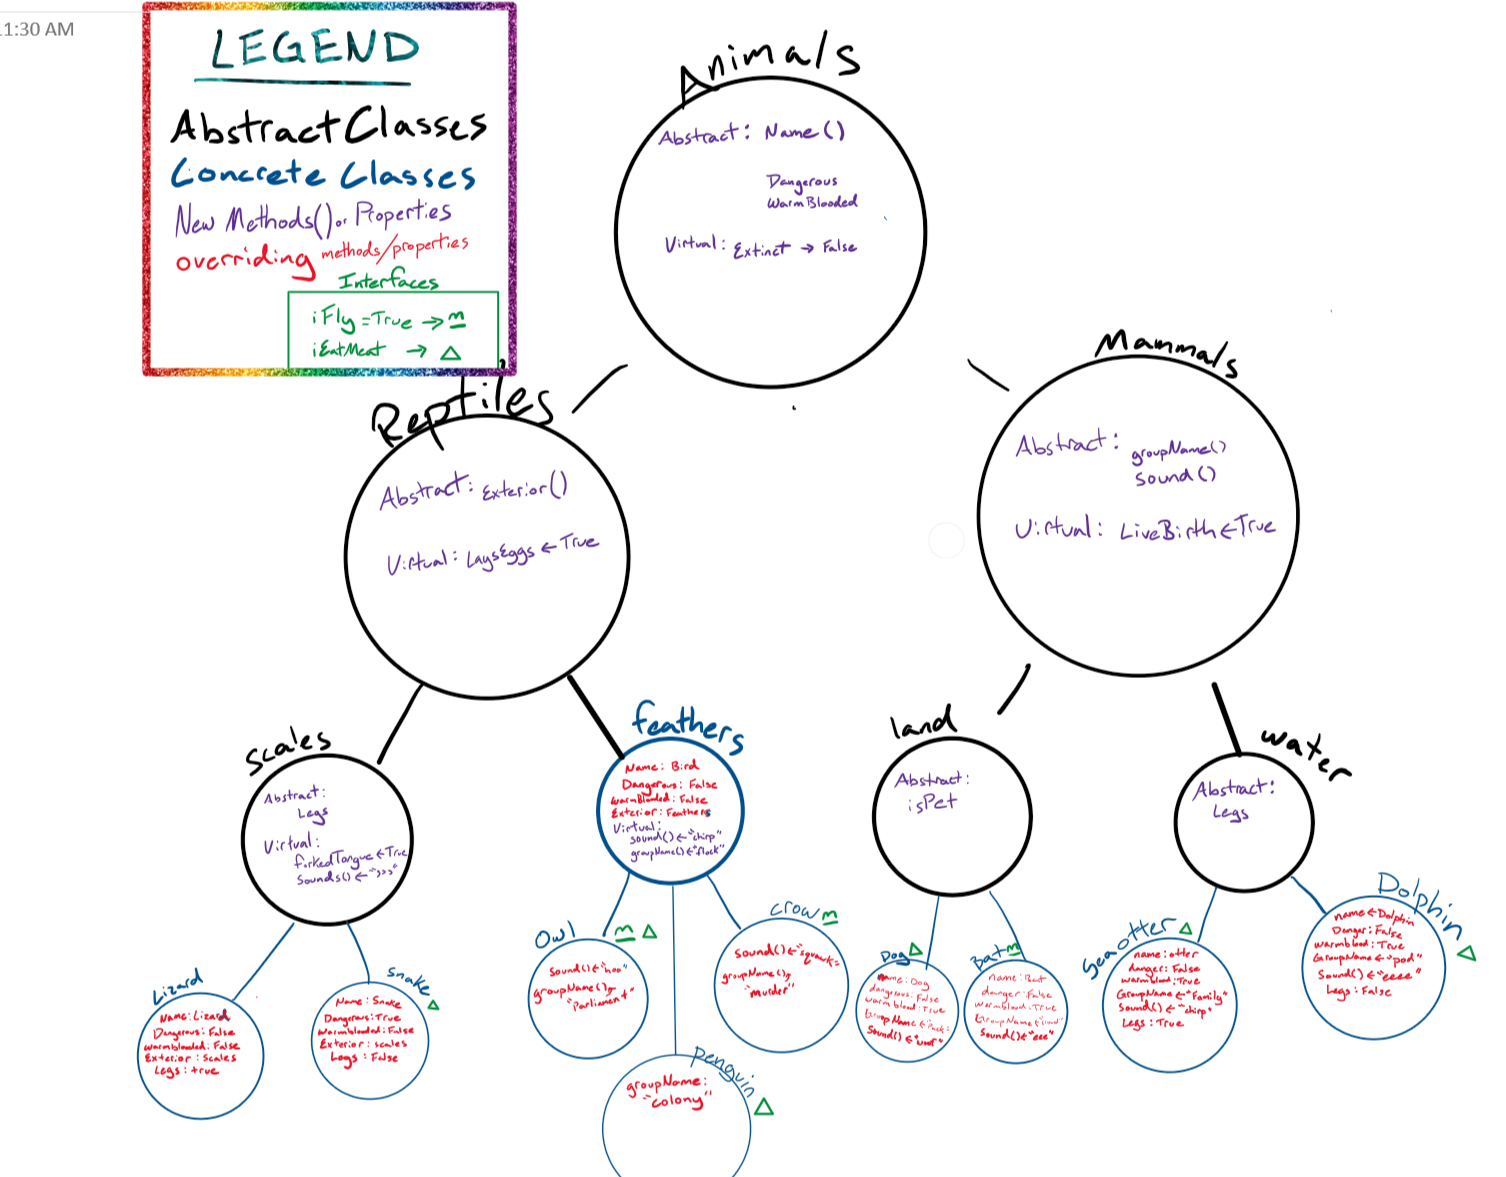 11:30 AM
LEGEND
Abstract Classes
Concrete Classes
New Methods() or Properties
overriding methods/properties
Interfaces
iFly = True → m
iEatMeat → △
Animals
Abstract: Name()
Dangerous
WarmBlooded
Virtual: Extinct → False
Reptiles
Abstract: Exterior()
Virtual: LaysEggs ← True
Mammals
Abstract: groupName()
Sound()
Virtual: LiveBirth ← True
Scales
Abstract:
Legs
Virtual:
forkedTongue ← True
Sounds() ← "sss"
feathers
Name: Bird
Dangerous: False
WarmBlooded: False
Exterior: Feathers
Virtual:
sound() ← "chirp"
groupName() ← "flock"
land
Abstract:
isPet
water
Abstract:
Legs
Lizard
Name: Lizard
Dangerous: False
warmblooded: False
Exterior: Scales
Legs: true
Snake △
Name: Snake
Dangerous: True
Warmblooded: False
Exterior: scales
Legs: False
Owl m △
Sound() ← "hoo"
groupName()
"Parliament"
Penguin △
groupName:
"Colony"
Crow m
Sound() ← "squawk"
groupName()
"murder"
Dog △
name: Dog
dangerous: False
warm blood: True
GroupName ← "pack"
Sound() ← "woof"
Bat m
name: Bat
danger: False
warmblood: True
GroupName ←
Sound() ← "eee"
Sea otter △
name: otter
danger: False
warmblood: True
GroupName ← "Family"
Sound() ← "chirp"
Legs: True
Dolphin △
name ← Dolphin
Danger: False
warmblood: True
GroupName ← "pod"
Sound() ← "eeee"
Legs: False